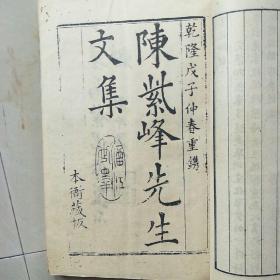 乾隆戊子仲春重鐫
陳紫峰先生
文集
本衙藏板